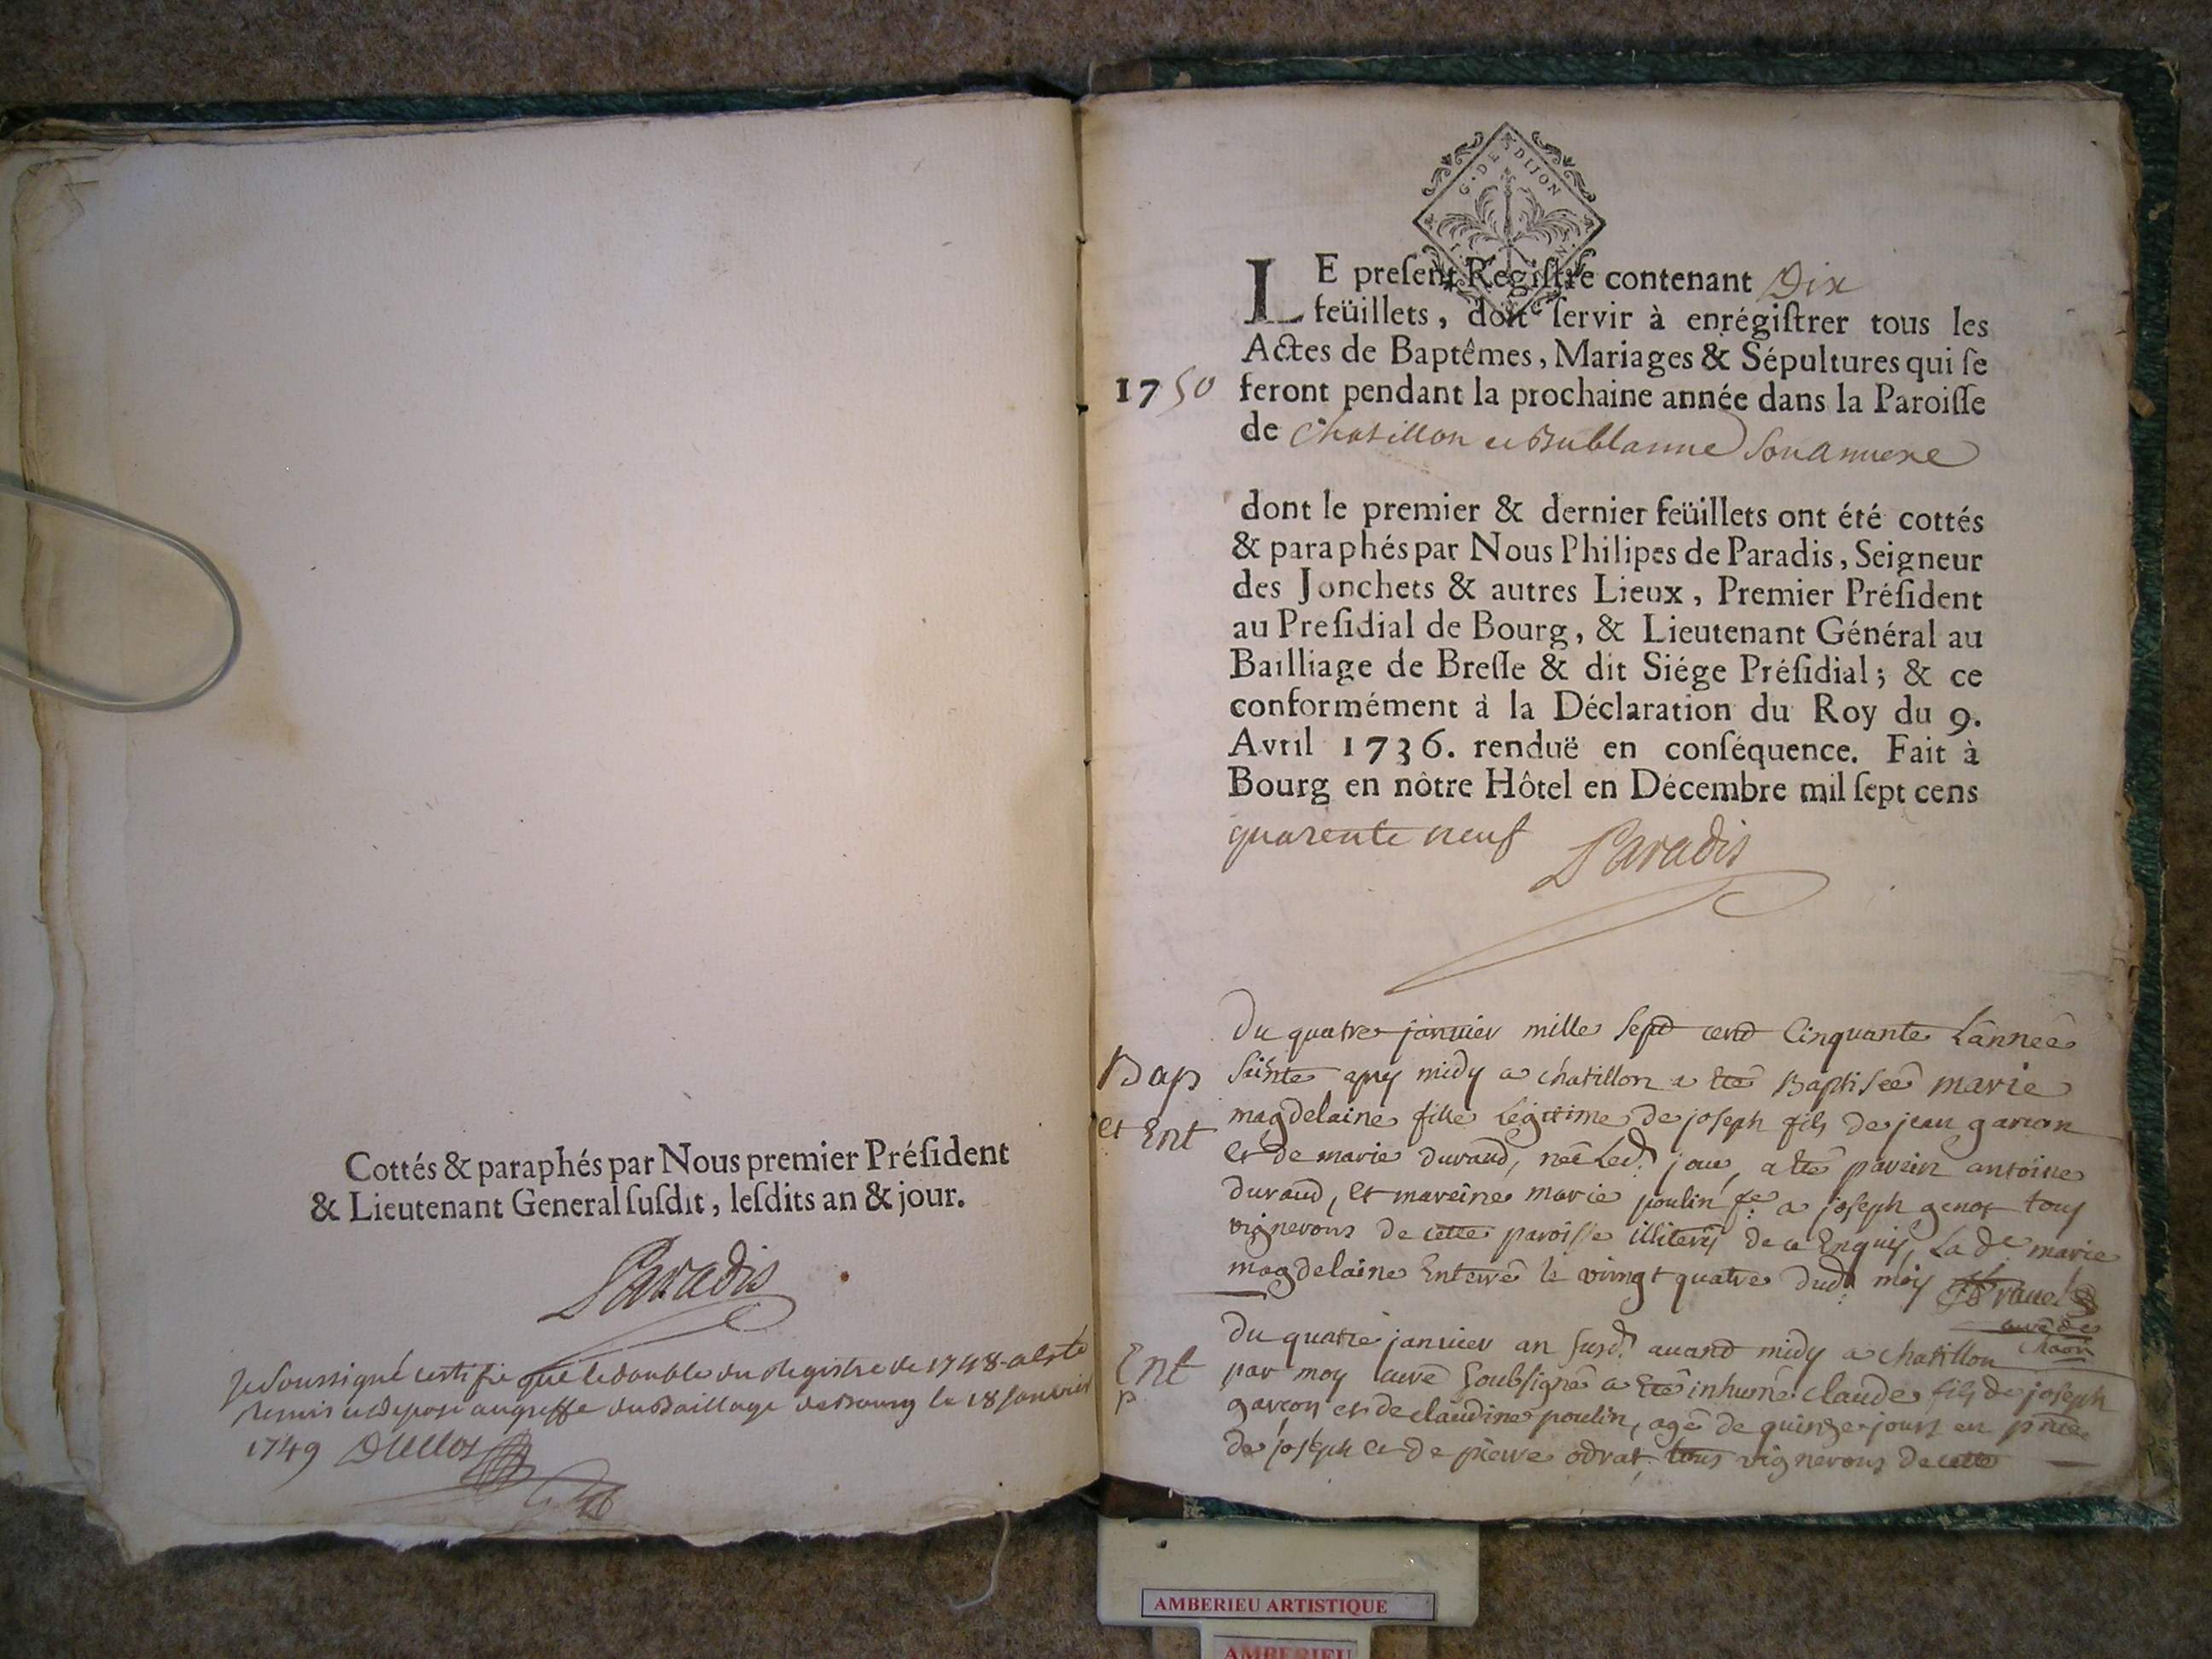 Cottés & paraphés par Nous premier Préſident
& Lieutenant General ſuſdit, leſdits an & jour.
Paradis
Je soussigné certifie que le double du Registre de 1748 a esté
remis et deposé au greffe du Baillage de Bourg le 18 Janvier
1749
G. DE DIJON
LE preſent Regiſtre contenant Dix
feüillets, doit ſervir à enrégiſtrer tous les
Actes de Baptêmes, Mariages & Sépultures qui ſe
1750 feront pendant la prochaine année dans la Paroiſſe
de Chatillon et Bublanne son annexe
dont le premier & dernier feüillets ont été cottés
& paraphés par Nous Philipes de Paradis, Seigneur
des Jonchets & autres Lieux, Premier Préſident
au Preſidial de Bourg, & Lieutenant Général au
Bailliage de Breſſe & dit Siége Préſidial; & ce
conformément à la Déclaration du Roy du 9.
Avril 1736. renduë en conſéquence. Fait à
Bourg en nôtre Hôtel en Décembre mil ſept cens
quarente neuf Paradis
Du quatre janvier mille sept cent Cinquante L'année
Bap Sainte apres midy a chatillon a eté Baptisée marie
et Ent magdelaine fille Legitime de joseph fils de jean garcon
et de marie durand, neé Led. jour, a eté parein antoine
durand, et mareine marie poulin fe. a joseph genot tous
vignerons de cette paroisse illiterés de ce Enquis, La de marie
magdelaine Enterré le vingt quatre dud. mois
curé de
chaon
Du quatre janvier an susd. avant midy a chatillon
Ent par moy curé soubsigné a eté inhumé claude fils de joseph
p garcon et de claudine poulin, agé de quinze jours en pnce
de joseph et de pierre odrat, tous vignerons de cette
AMBERIEU ARTISTIQUE
AMBERIEU